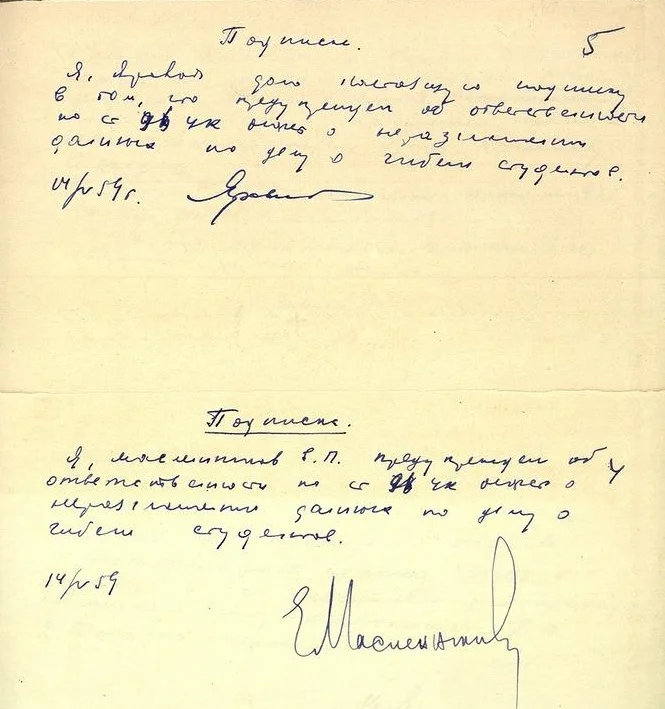 Подписка.
5
Я, Яровой даю настоящую подписку
в том, что предупрежден об ответственности
по ст 96 УК РСФСР о неразглашении
данных по делу о гибели студентов.
14/V 59г. Яровой
Подписка.
Я, Масленников Е.П. предупрежден об
4
ответственности по ст 96 УК РСФСР о
неразглашении данных по делу о
гибели студентов.
14/V 59
ЕМасленников